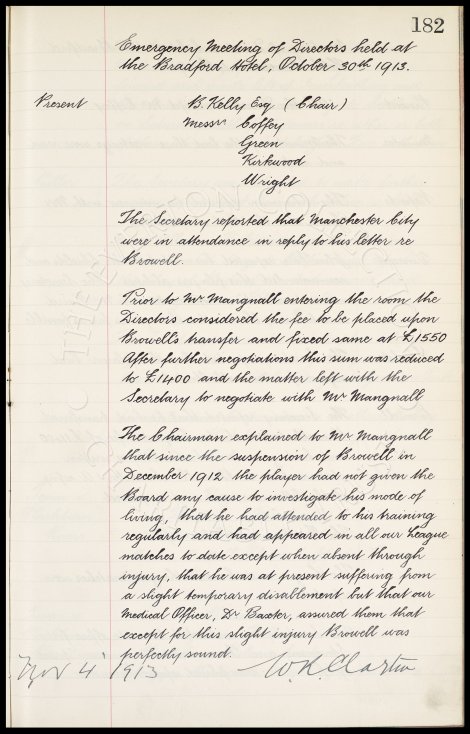 182
Emergency Meeting of Directors held at
the Bradford Hotel, October 30th 1913.
Present B. Kelly Esq (Chair)
Messrs Coffey
Green
Kirkwood
Wright
The Secretary reported that Manchester City
were in attendance in reply to his letter re
Browell.
Prior to Mr Mangnall entering the room the
Directors considered the fee to be placed upon
Browell's transfer and fixed same at £1550
After further negotiations this sum was reduced
to £1400 and the matter left with the
Secretary to negotiate with Mr Mangnall
The Chairman explained to Mr Mangnall
that since the suspension of Browell in
December 1912 the player had not given the
Board any cause to investigate his mode of
living, that he had attended to his training
regularly and had appeared in all our League
matches to date except when absent through
injury, that he was at present suffering from
a slight temporary disablement but that our
Medical Officer, Dr Baxter, assured them that
except for this slight injury Browell was
perfectly sound.
Nov 4 1913